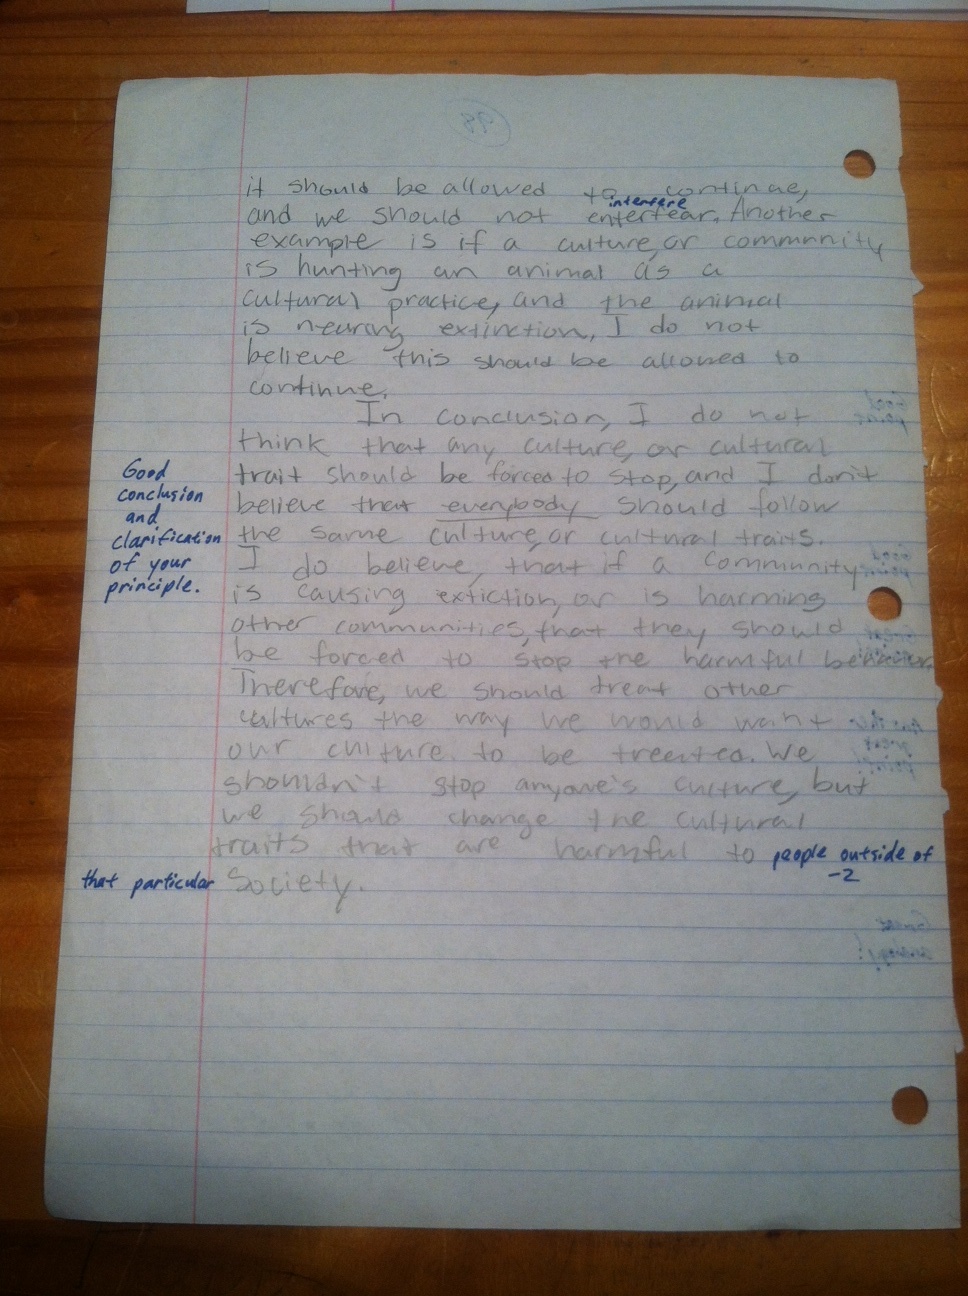 98
it should be allowed to continue,
interfere
and we should not enterfear. Another
example is if a culture, or community
is hunting an animal as a
cultural practice, and the animal
is nearing extinction, I do not
believe this should be allowed to
continue.
In conclusion, I do not
think that any culture, or cultural
trait should be forced to stop, and I don't
believe that everybody should follow
the same culture, or cultural traits.
I do believe, that if a community
is causing extiction, or is harming
other communities, that they should
be forced to stop the harmful behavior.
Therefore, we should treat other
cultures the way we would want
our culture to be treated. We
shouldn't stop anyone's culture, but
we should change the cultural
traits that are harmful to people outside of
-2
that particular society.
Good
conclusion
and
clarification
of your
principle.
Good
point
Good
point
Great
Another
great
point!
Great